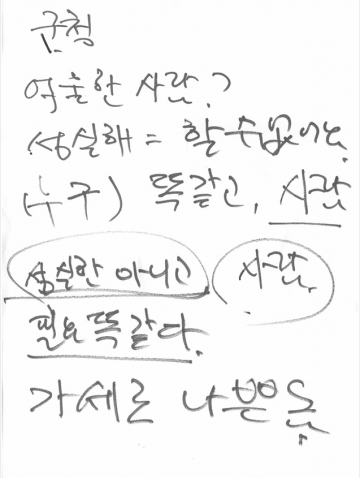 군청
억출한 사람?
성실해 = 할 수 없어요.
(누구) 똑같고, 사람
성실한 아니고 사람.
필요 똑같다.
가세로 나쁜놈